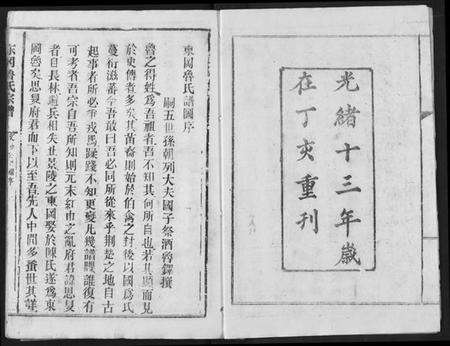 光緒十三年歲
在丁亥重刊
東岡魯氏譜圖序
嗣五世孫朝列大夫國子祭酒魯鐸撰
魯之得姓為吾祖者吾不知其何所自也若其顯而見
於史傳者多矣其苗裔則始於伯禽之封後以國為氏
蔓衍滋蕃今吾敢曰吾必同所從來乎荆楚之地自古
起事者所必爭戎馬蹂踐不知更變凡幾譜牒誰復有
可考者吾宗自吾所知則元末紅巾之亂府君諱思旻
者自長林避兵相失世景陵之東岡娶於陳氏遂為東
岡魯矣思旻府君而下以至吾先人中間多蚤世其謹
東岡魯氏宗譜